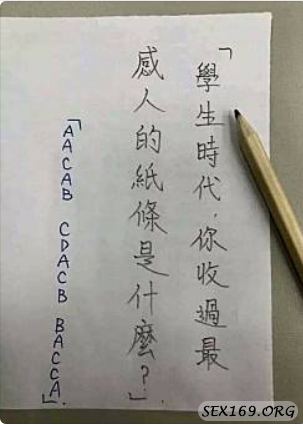 「學生時代，你收過最
感人的紙條是什麼？」
「AACAB CDACB BACCA」
SEX169.ORG